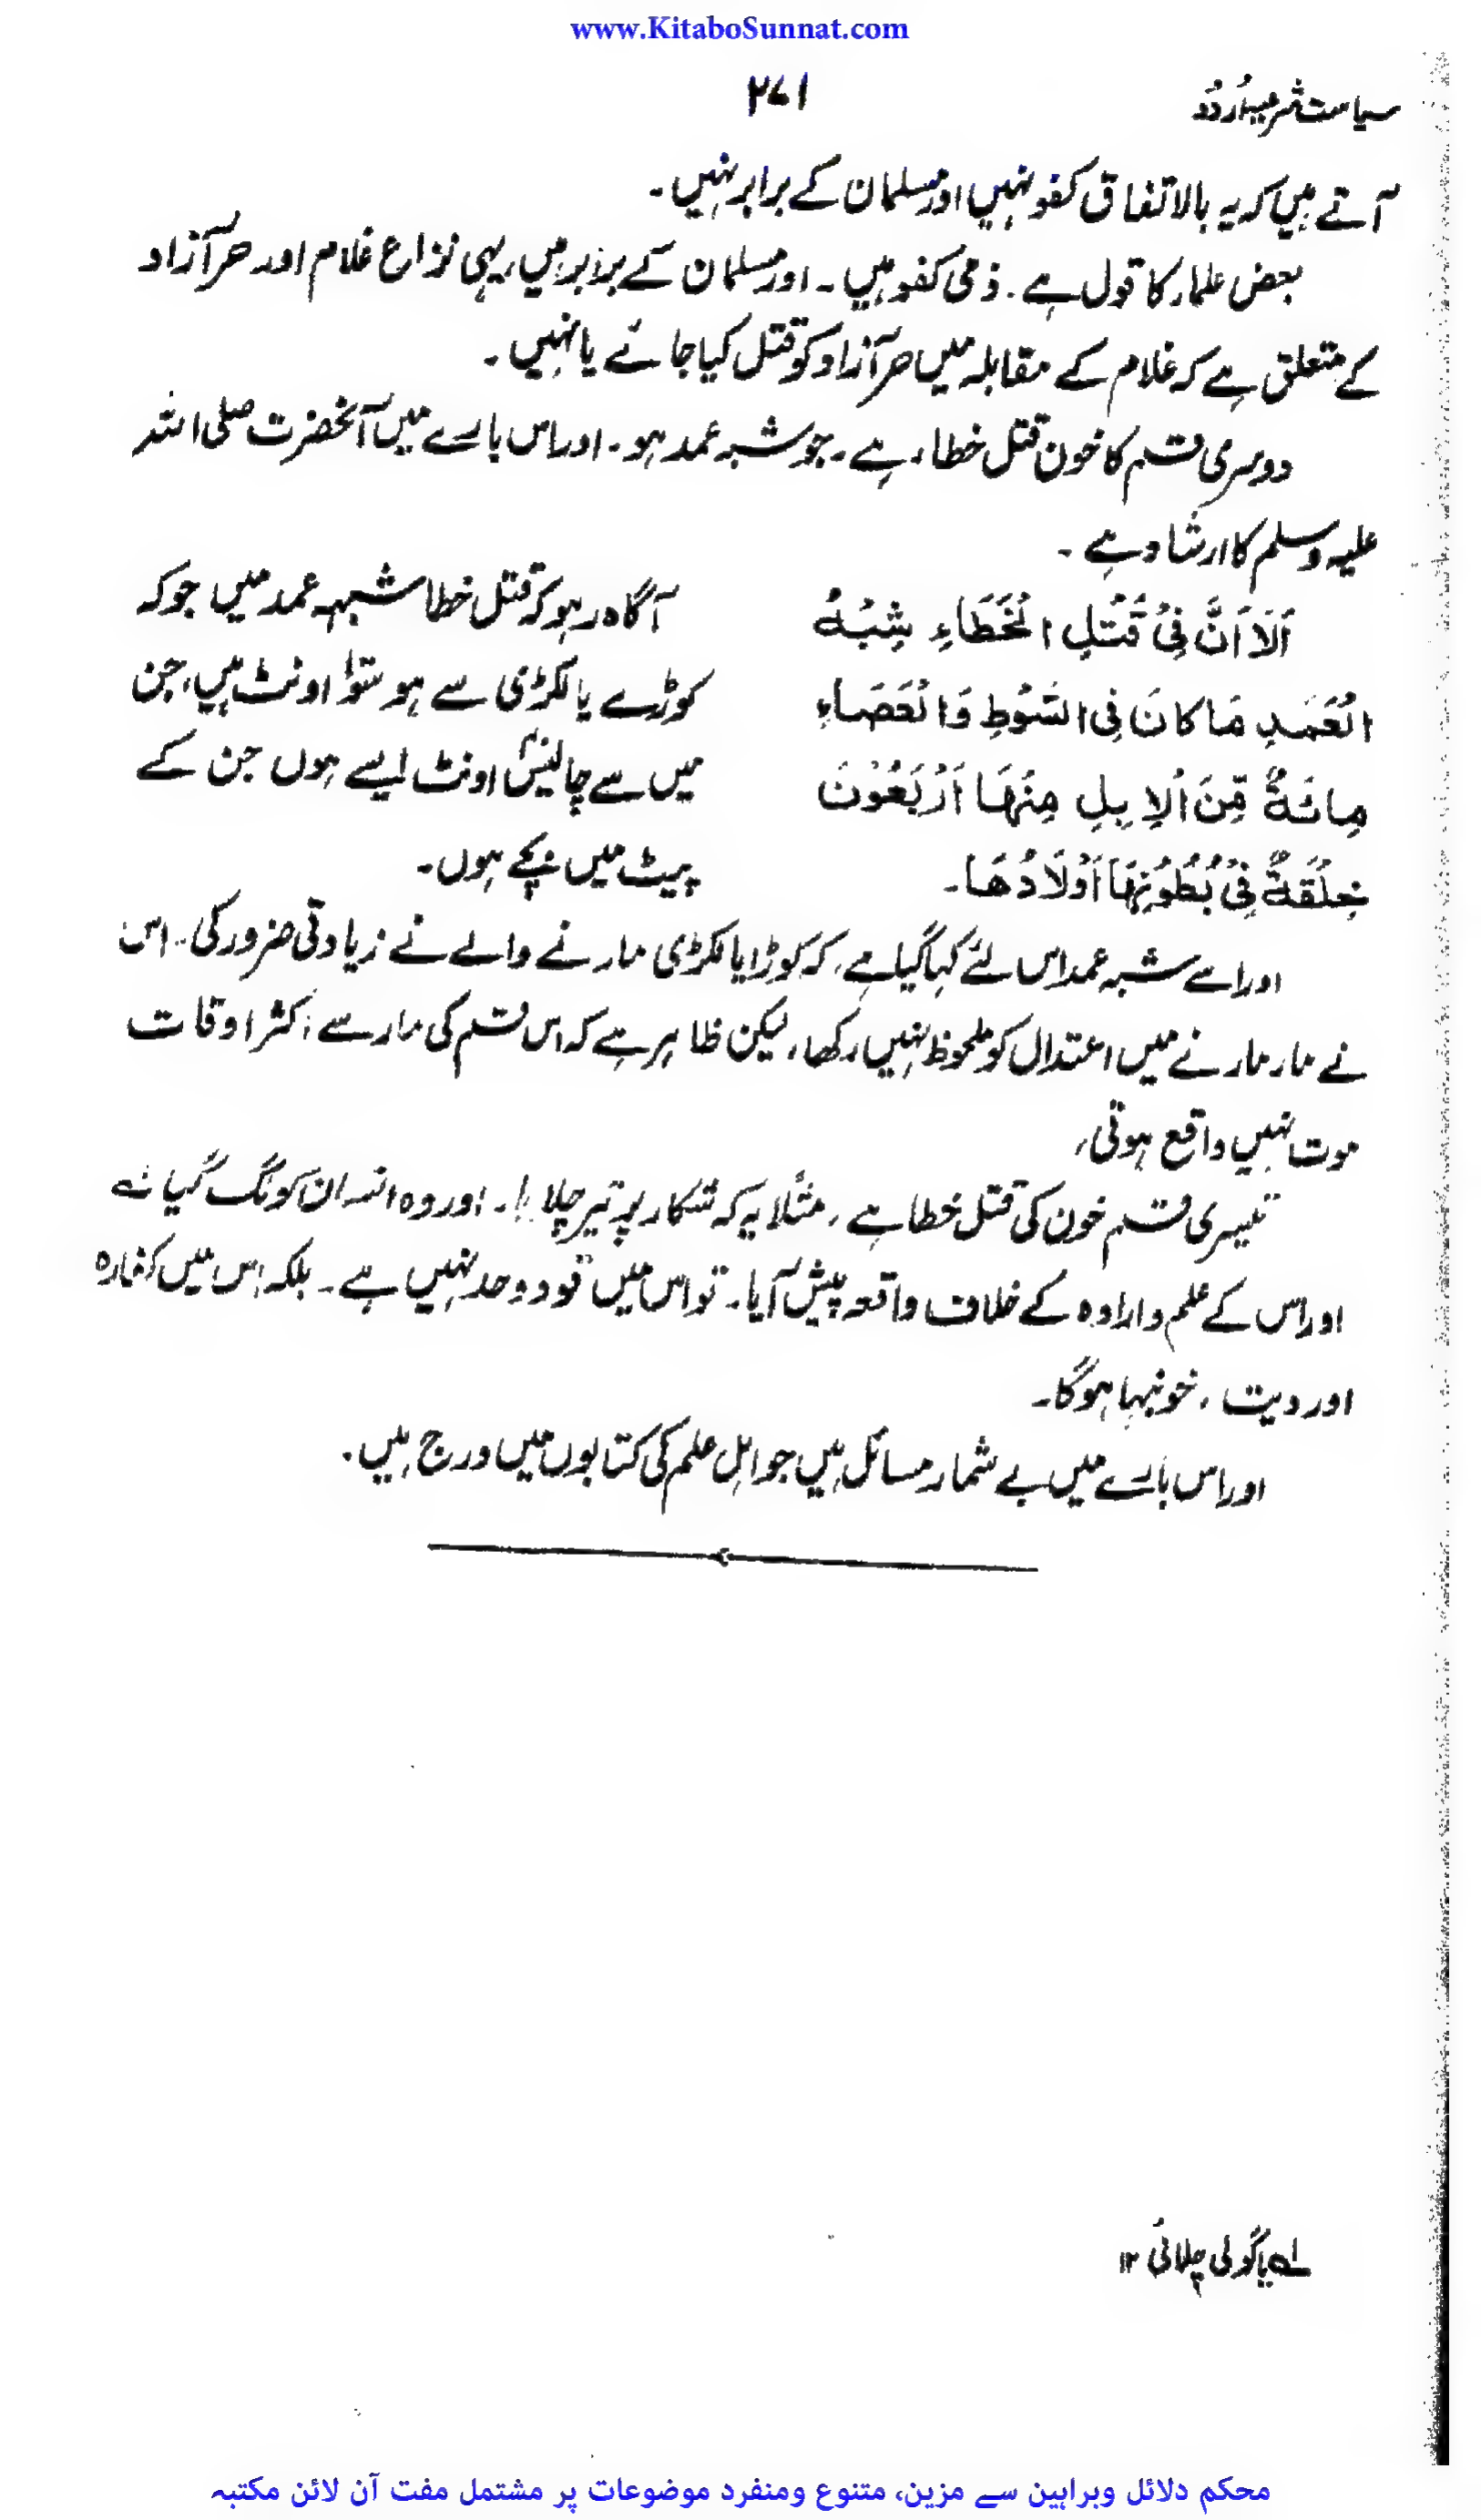 www.KitaboSunnat.com
سیاست شرعیہ اُردُو
۲۷۱
آتے ہیں کہ یہ بالاتفاق کفو نہیں اور مسلمان کے برابر نہیں۔
بعض علماء کا قول ہے۔ ذمی کفو ہیں۔ اور مسلمان کے برابر ہیں، یہی نزاع غلام اور حر آزاد
کے متعلق ہے کہ غلام کے مقابلہ میں حر آزاد کو قتل کیا جائے یا نہیں۔
دوسری قسم کا خون قتل خطاء ہے۔ جو شبہ عمد ہو۔ اور اس بارے میں آنحضرت صلی اللہ
علیہ وسلم کا ارشاد ہے۔
اَلَا اَنَّ فِیْ قَتْلِ الْخَطَاءِ شِبْهُ
الْعَمَدِ مَا کَانَ فِی السَّوْطِ وَالْعَصَاءِ
مِائَةٌ مِّنَ الْاِبِلِ مِنْهَا اَرْبَعُوْنَ
خِلْقَةٌ فِیْ بُطُوْنِهَا اَوْلَادُهَا۔
آگاہ رہو کہ قتل خطا شبہہ عمد میں جو کہ
کوڑے یا لکڑی سے ہو سَو اونٹ ہیں، جن
میں سے چالیس اونٹ ایسے ہوں جن کے
پیٹ میں بچے ہوں۔
اور اسے شبہ عمد اس لئے کہا گیا ہے، کہ کوڑا یا لکڑی مارنے والے نے زیادتی ضرور کی۔ اس
نے مار مارنے میں اعتدال کو ملحوظ نہیں رکھا، لیکن ظاہر ہے کہ اس قسم کی مار سے اکثر اوقات
موت نہیں واقع ہوتی،
تیسری قسم خون کی قتل خطا ہے، مثلا یہ کہ شکار پر تیر چلایا۔ اور وہ انسان کو لگ گیا لے
اور اس کے علم و ارادہ کے خلاف واقعہ پیش آیا۔ تو اس میں قود و حد نہیں ہے۔ بلکہ اس میں کفارہ
اور دیت، خونبہا ہوگا۔
اور اس بارے میں بے شمار مسائل ہیں جو اہل علم کی کتابوں میں درج ہیں۔
لے یا گولی چلائی ۱۲
محکم دلائل وبراہین سے مزین، متنوع ومنفرد موضوعات پر مشتمل مفت آن لائن مکتبہ